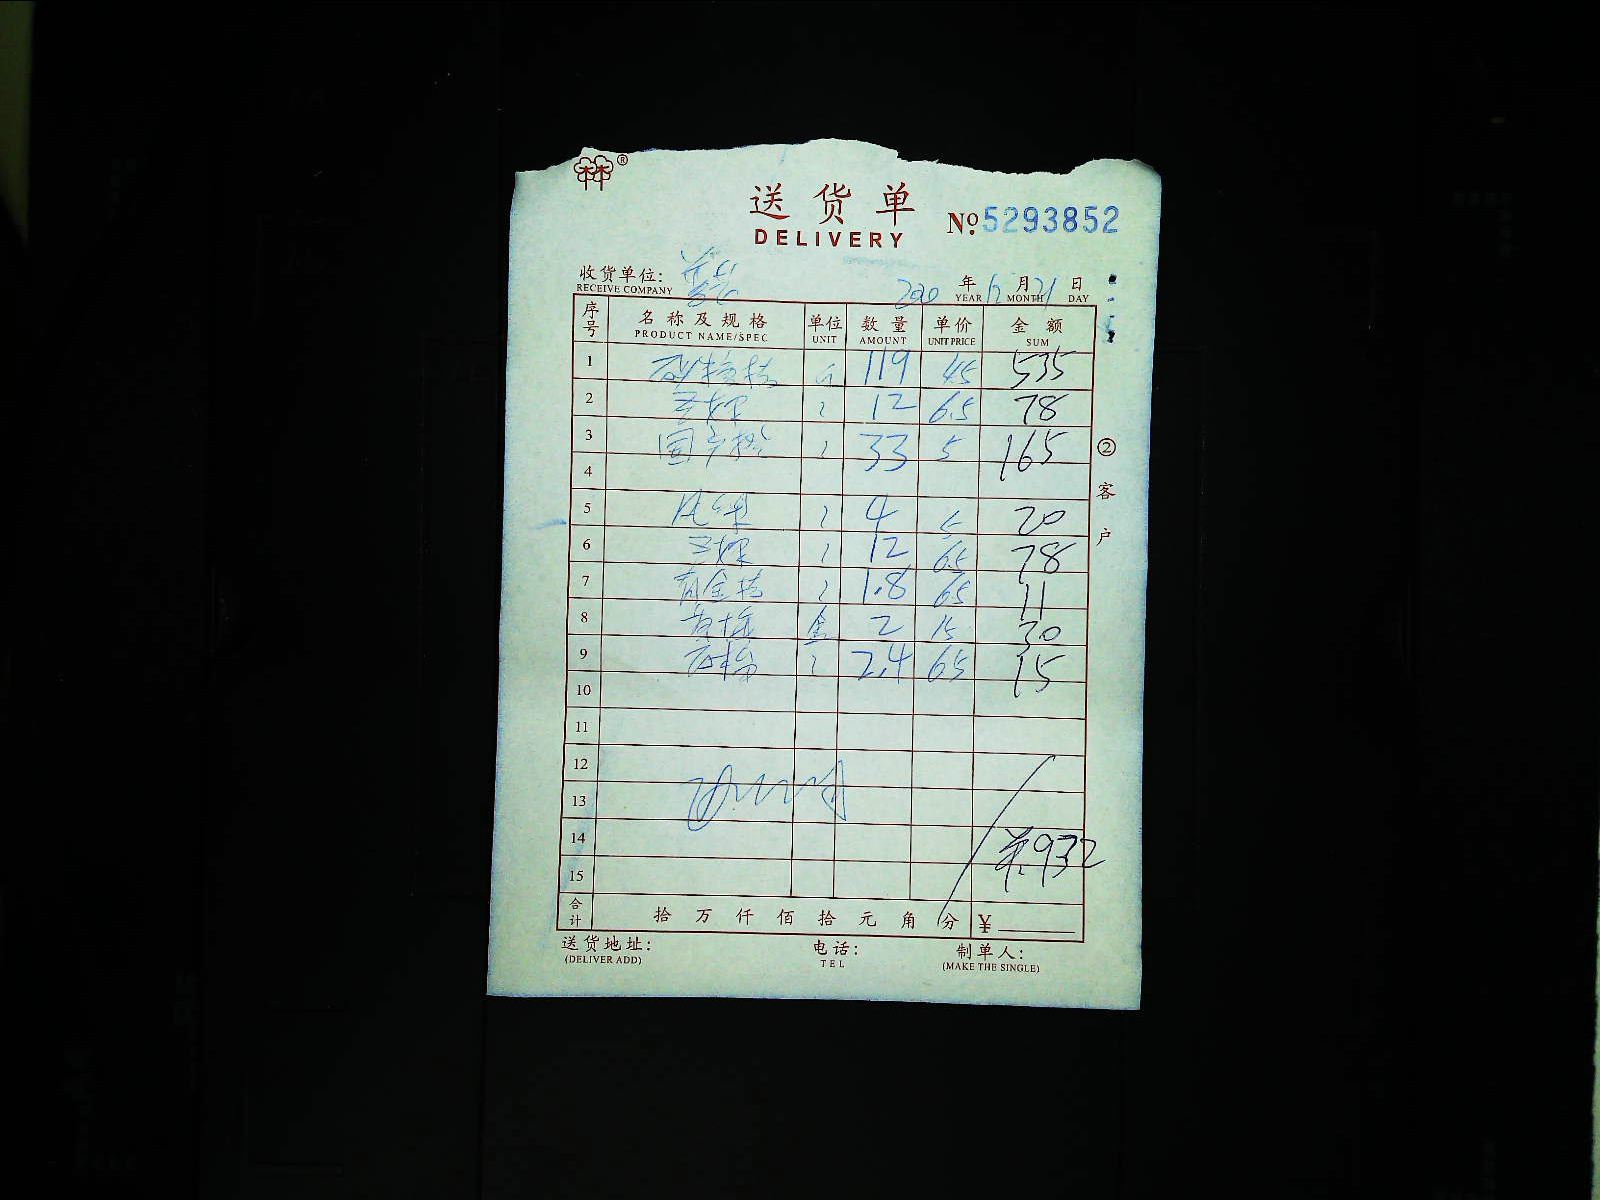 ®
送货单
DELIVERY
№ 5293852
收货单位:
RECEIVE COMPANY
2020 年 12 月 21 日
YEAR MONTH DAY
序号 名称及规格 单位 数量 单价 金额
PRODUCT NAME/SPEC UNIT AMOUNT UNIT PRICE SUM
1 119 4.5 535
2 12 6.5 78
3 国产 33 5 165
4
5 4 5 20
6 12 6.5 78
7 1.8 65 11
8 2 15 30
9 2.4 65 15
10
11
12
13
14 ¥932
15
合计 拾 万 仟 佰 拾 元 角 分 ¥
② 客户
送货地址: 电话: 制单人:
(DELIVER ADD) TEL (MAKE THE SINGLE)